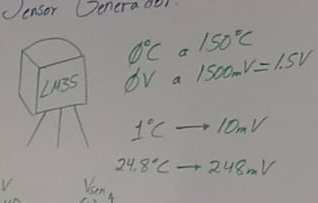 Sensor Generador.
0°C a 150°C
0V a 1500mV=1.5V
LM35
1°C → 10mV
24.8°C → 248mV
V Vsen